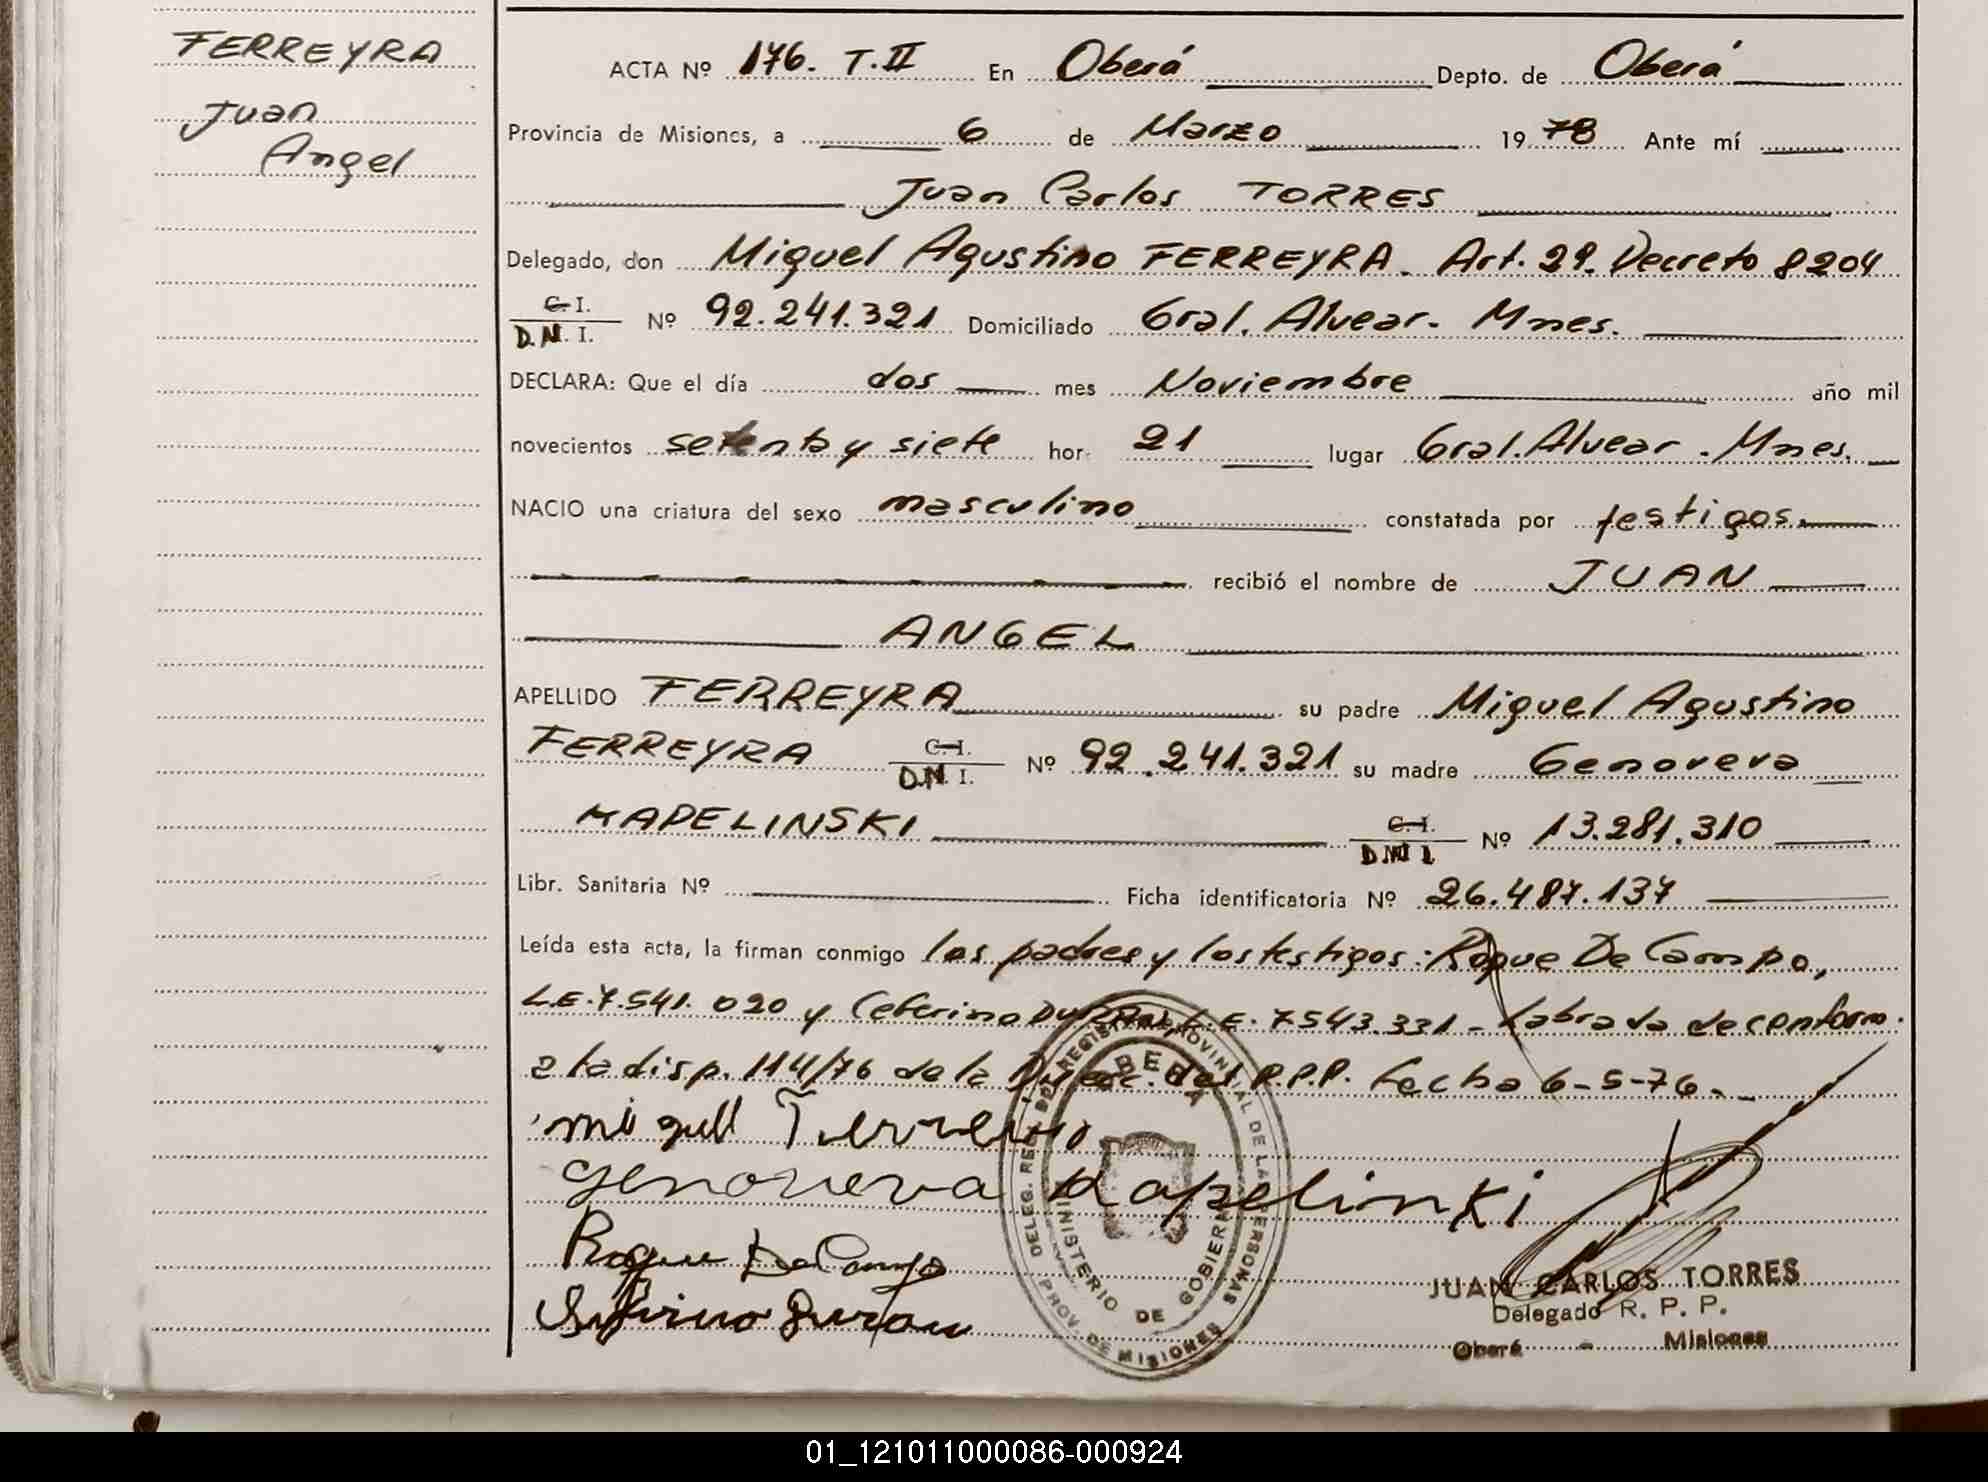 FERREYRA
Juan
Angel
ACTA Nº 176. T. II En Oberá Depto. de Oberá
Provincia de Misiones, a 6 de Marzo 1978 Ante mí
Juan Carlos TORRES
Delegado, don Miguel Agustino FERREYRA. Art. 29. Decreto 8204
C. I.
D.N. I. Nº 92.241.321 Domiciliado Gral. Alvear. Mnes.
DECLARA: Que el día dos mes Noviembre año mil
novecientos setenta y siete hor. 21 lugar Gral. Alvear. Mnes.
NACIO una criatura del sexo masculino constatada por testigos.
recibió el nombre de JUAN
ANGEL
APELLIDO FERREYRA su padre Miguel Agustino
FERREYRA C. I.
D.N. I. Nº 92.241.321 su madre Genoveva
KAPELINSKI C. I.
D.N. I. Nº 13.281.310
Libr. Sanitaria Nº Ficha identificatoria Nº 26.487.137
Leída esta acta, la firman conmigo los padres y los testigos: Roque De Campo,
L.E. 7.541.020 y Ceferino DURAN, L.E. 7543.331 - Labrada de conform.
a la disp. 114/76 de la Direc. del R.P.P. fecha 6-5-76.-
Miguel Ferreyra
genoveva Kapelinki
Roque De Campo
Seferino Duran
DELEG. REG. DEL REGISTRO PROVINCIAL DE LAS PERSONAS
OBERA
MINISTERIO DE GOBIERNO
PROV. DE MISIONES
JUAN CARLOS TORRES
Delegado R. P. P.
Oberá - Misiones
01_121011000086-000924